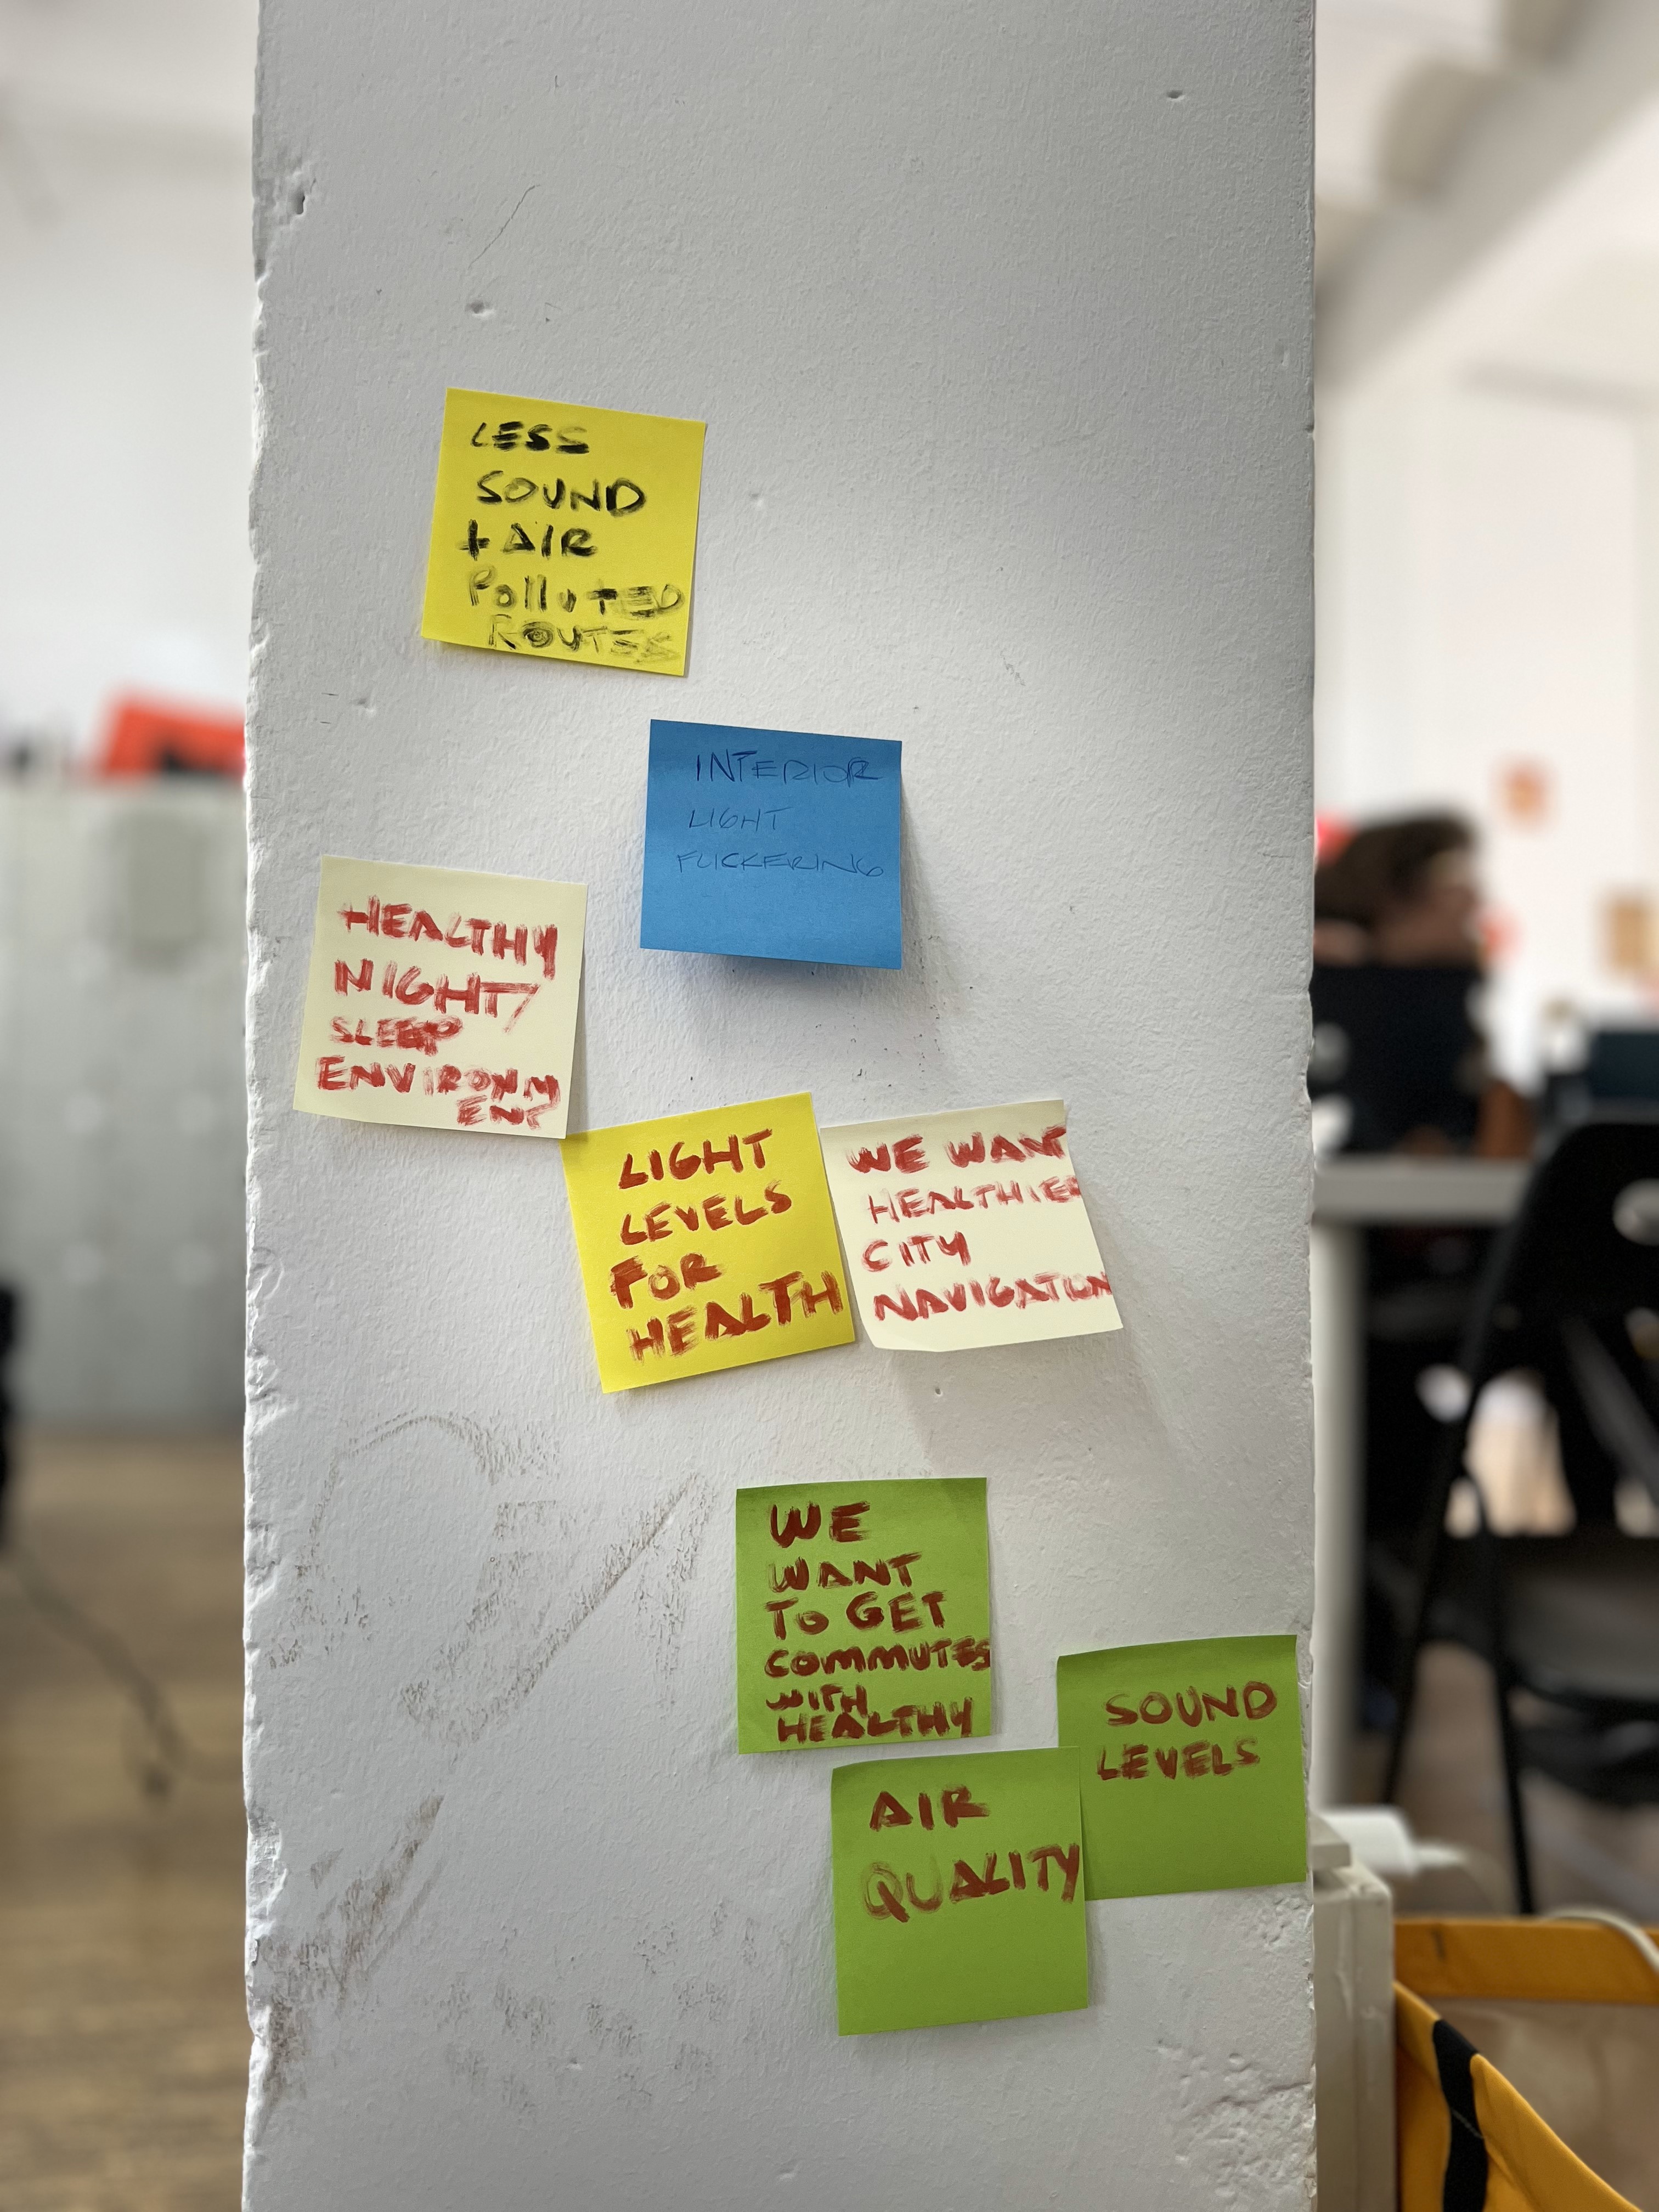 LESS
SOUND
+ AIR
POLLUTED
ROUTES
INTERIOR
LIGHT
FLICKERING
HEALTHY
NIGHT/
SLEEP
ENVIRONM
ENT
LIGHT
LEVELS
FOR
HEALTH
WE WANT
HEALTHIER
CITY
NAVIGATION
WE
WANT
TO GET
COMMUTES
WITH
HEALTHY
SOUND
LEVELS
AIR
QUALITY